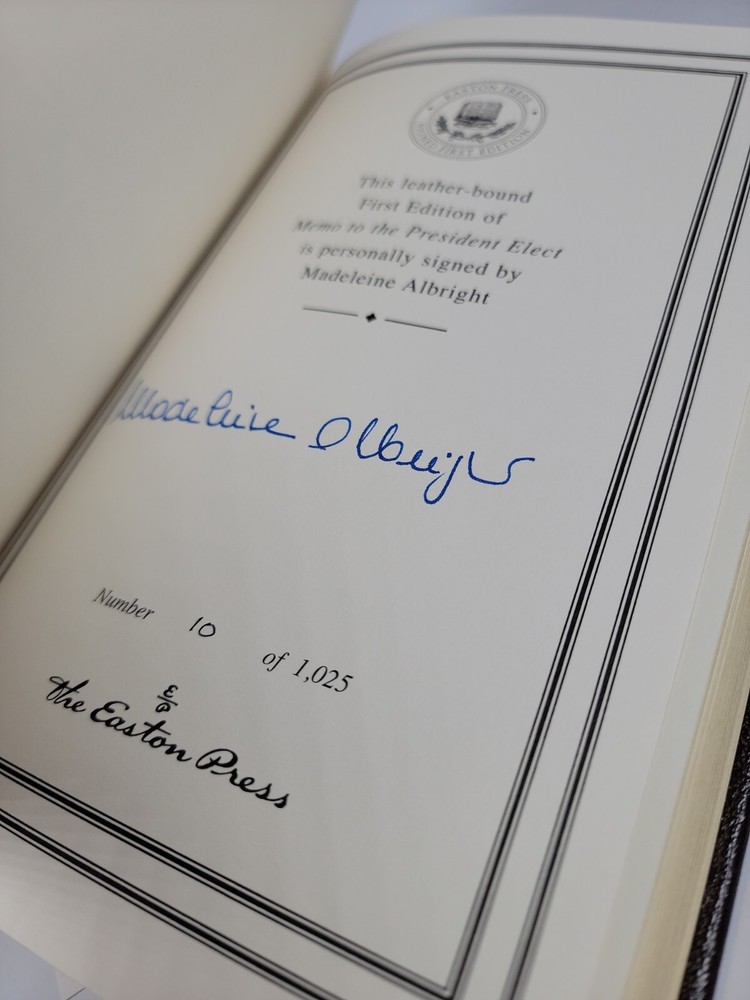 EASTON PRESS
SIGNED FIRST EDITION
This leather-bound
First Edition of
Memo to the President Elect
is personally signed by
Madeleine Albright
Madeleine Albright
Number 10 of 1,025
E/P
The Easton Press